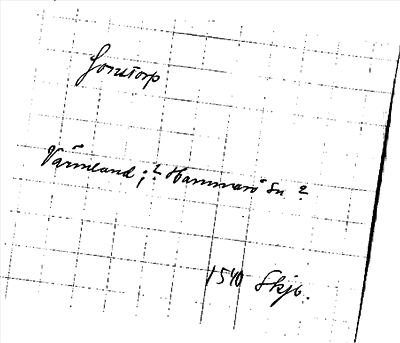 Jonstorp
Värmland; ? Hammarö Sn ?
1540 Skjb.